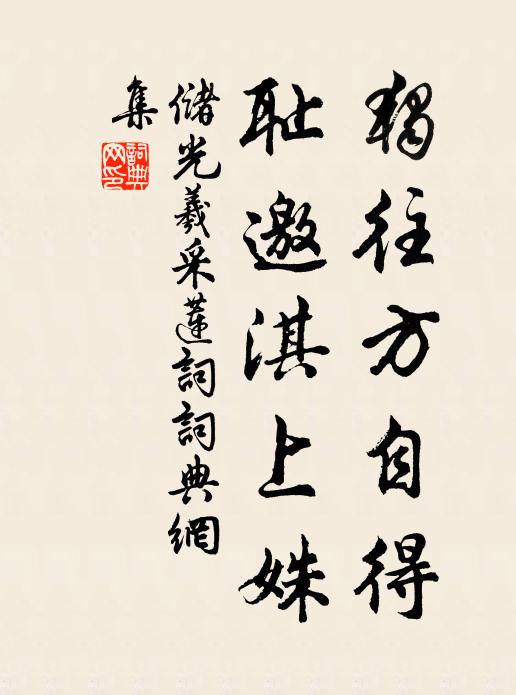 獨往方自得
耻邀淇上姝
儲光羲采蓮詞詞典網
集
詞典網印